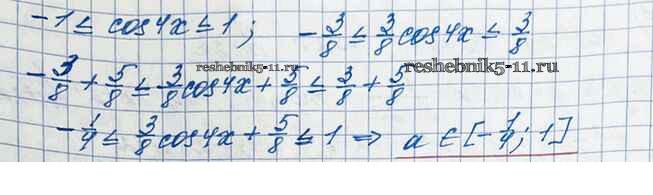 -1 ≤ cos4x ≤ 1; -3/8 ≤ 3/8 cos4x ≤ 3/8
reshebnik5-11.ru
reshebnik5-11.ru
-3/8 + 5/8 ≤ 3/8 cos4x + 5/8 ≤ 3/8 + 5/8
-1/4 ≤ 3/8 cos4x + 5/8 ≤ 1 ⇒ a ∈ [-1/4; 1]